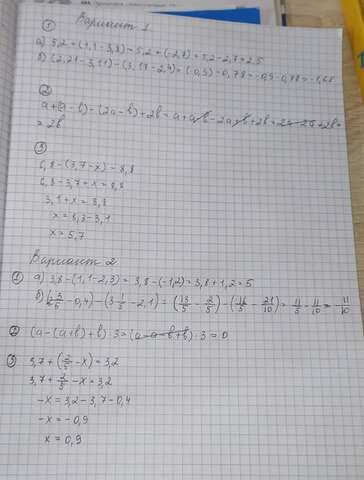 Вариант 1
①
а) 5,2 + (1,1 - 3,8) = 5,2 + (-2,7) = 5,2 - 2,7 = 2,5
б) (2,21 - 3,11) - (3,18 - 2,4) = (-0,9) - 0,78 = -0,9 - 0,78 = -1,68
②
a + (a - b) - (2a - b) + 2b = a + a - b - 2a + b + 2b = 2a - 2a + 2b =
= 2b
③
6,8 - (3,7 - x) = 8,8
6,8 - 3,7 + x = 8,8
3,1 + x = 8,8
x = 8,8 - 3,1
x = 5,7
Вариант 2
① а) 3,8 - (1,1 - 2,3) = 3,8 - (-1,2) = 3,8 + 1,2 = 5
б) (2 3/5 - 0,4) - (3 1/5 - 2,1) = (13/5 - 2/5) - (16/5 - 21/10) = 11/5 - 11/10 = 11/10
② (a - (a + b) + b) · 3 = (a - a - b + b) · 3 = 0
③ 3,7 + (2/5 - x) = 3,2
3,7 + 2/5 - x = 3,2
-x = 3,2 - 3,7 - 0,4
-x = -0,9
x = 0,9